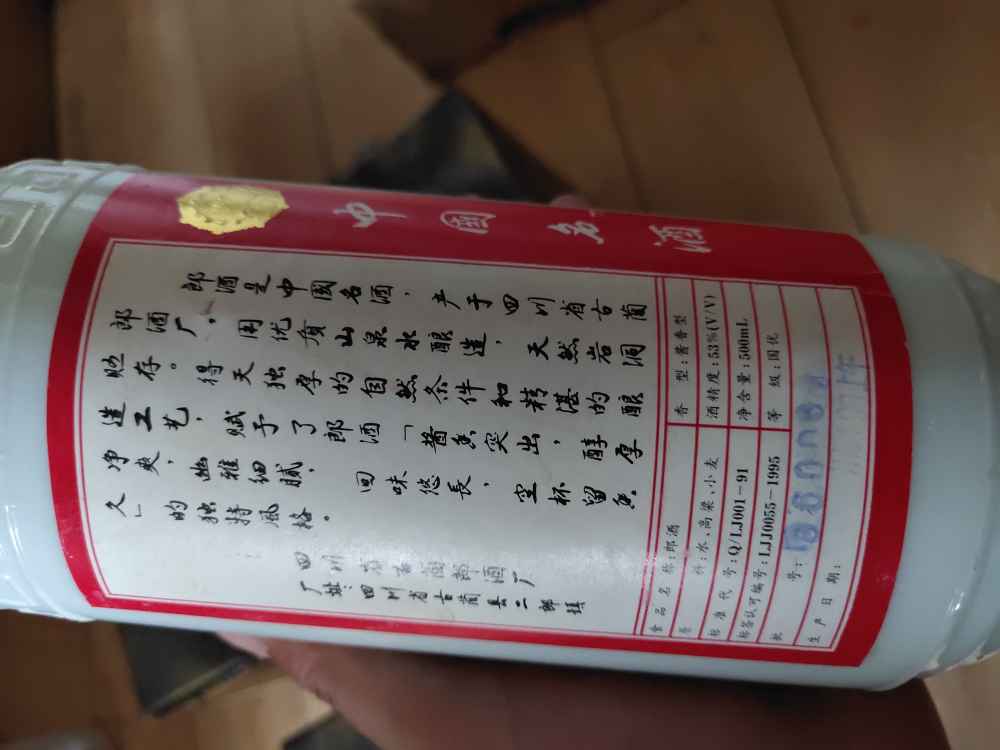 中國名酒
郎酒是中國名酒，产于四川省古蔺
郎酒厂。用优质山泉水酿造，天然岩洞
贮存。得天独厚的自然条件和精湛的酿
造工艺，赋予了郎酒「酱香突出，醇厚
净爽，幽雅细腻，回味悠長，空杯留香
久」的独特風格。
四川省古蔺郎酒厂
厂址：四川省古蔺县二郎镇
食品名称：郎酒 香型：酱香型
原料：水、高粱、小麦 酒精度：53%(V/V)
标准代号：Q/LJ001-91 净含量：500mL
标签认可编号：LJJ0055-1995 等级：国优
批号：
生产日期：